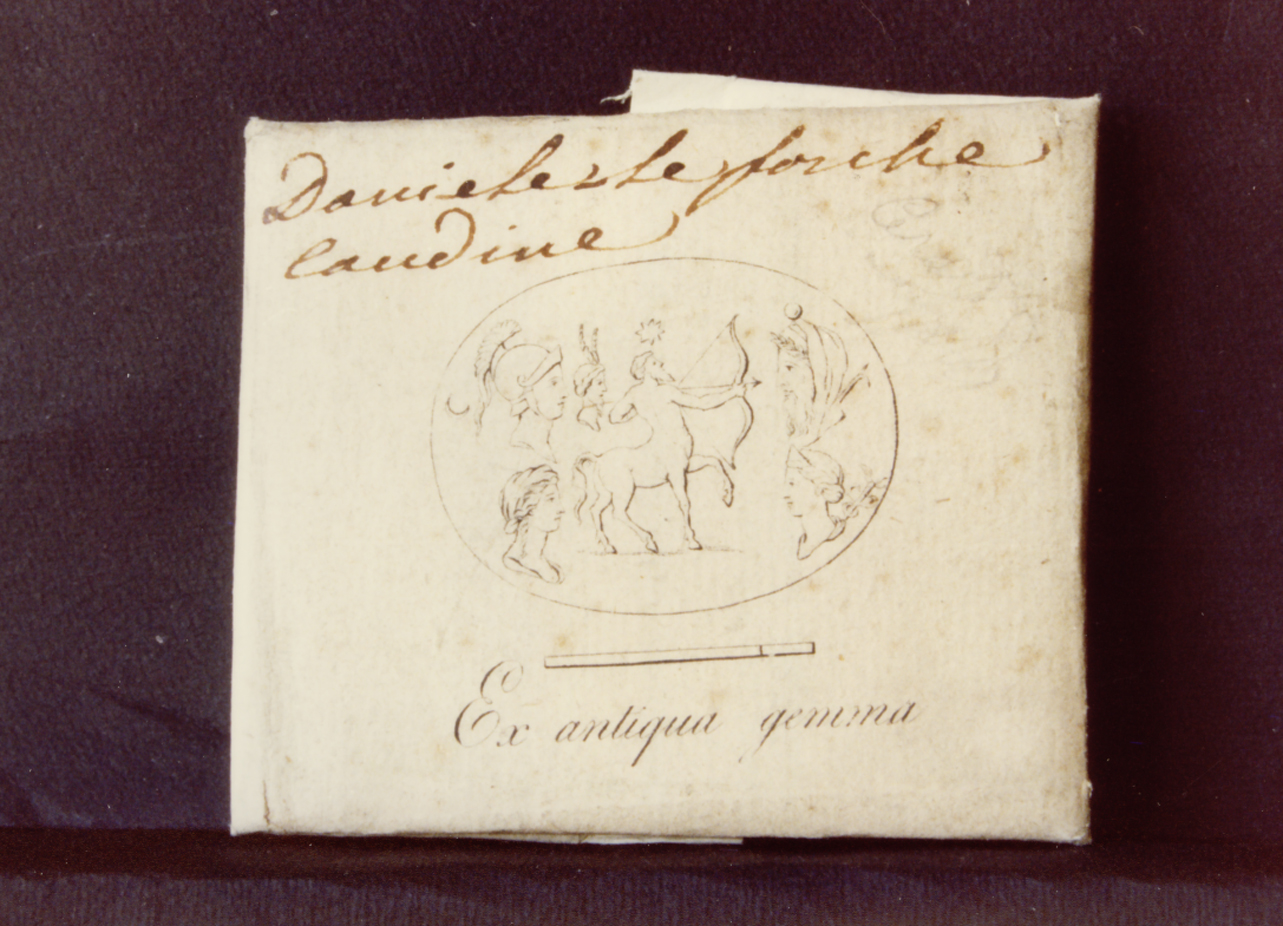 Daniele le forche
caudine
Ex antiqua gemma